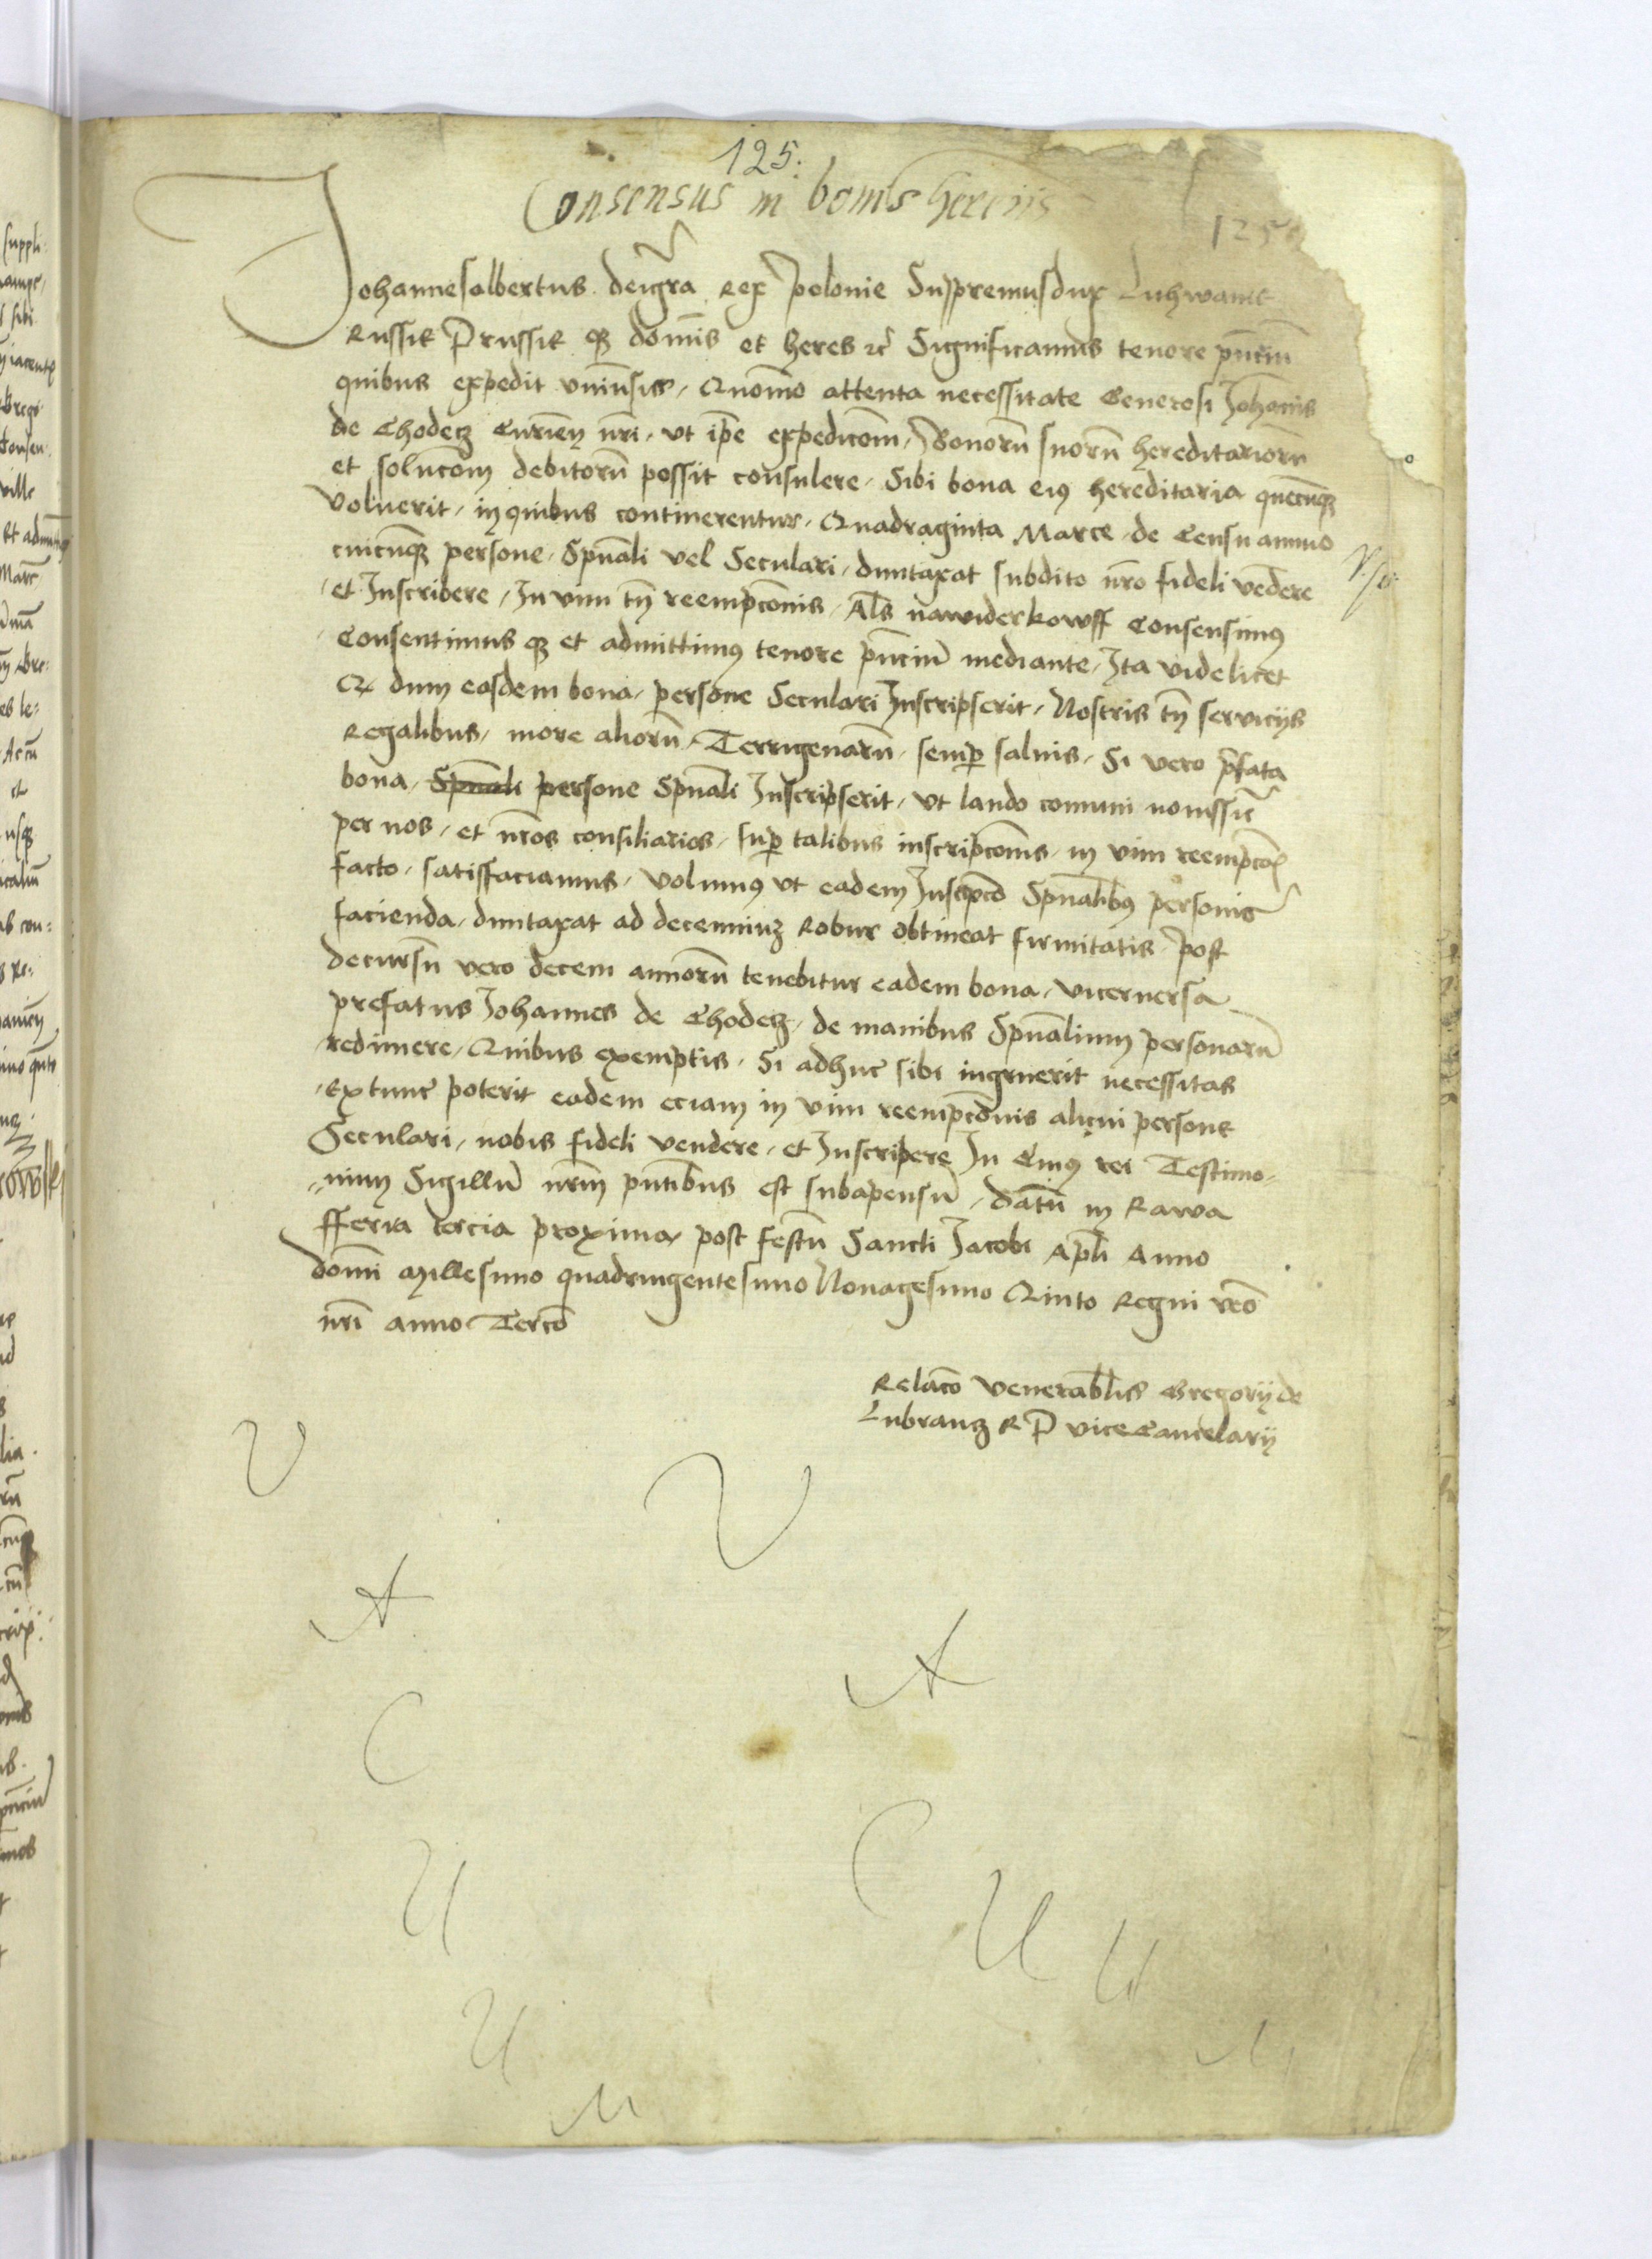 125.
Consensus in bonis herenis
125
Johannesalbertus deigr̃a Rex Polonie Suppremusdux Lithwanie
Russie Prussie qꝫ dom̃s et heres ⁊c̃ Significamus tenore pñciũ
quibus expedit vniũsis, Quom̃o attenta necessitate Generosi Joh̃anis
de Chodecz Curieñ nr̃i, vt ip̃e expedic̃om, Bonorũ suorũ hereditariorũ
et soluc̃om debitorũ possit consulere, Sibi bona eiꝰ hereditaria quecũqꝫ
voluerit, in quibus continerentur, Quadraginta Marce, de Censu annuo
cuicũqꝫ persone, Spũali vel Seculari, duntaxat subdito nr̃o fideli vẽdere
et Inscribere, In vim tñ reempc̃onis, Al̃s nawiderkowff Consensimꝰ
Consentimus qꝫ et admittimꝰ tenore pñciũ mediante, Ita videlicet
Qꝫ dum easdem bona, persone Seculari Inscripserit, Nostris tñ serviciis
Regalibus, more aliorũ, Terrigenarũ, semꝑ salvis, Si vero p̃fata
bona, Spũali persone Spũali Inscripserit, vt laudo comuni novissie
per nos, et nr̃os consiliarios, suꝑ talibus inscripc̃onis, in vim reempc̃oꝫ
facto, satisfaciamus, volumꝰ vt eadem Inscripc̃o Spũalibꝰ personis
facienda, duntaxat ad decenniuꝫ Robur obtineat firmitatis, post
decursũ vero decem annorũ tenebitur eadem bona, viceversa
prefatus Johannes de Chodecz, de manibus Spũalium personarũ
redimere, Quibus exemptis, Si adhuc sibi ingruerit necessitas
Extunc poterit eadem eciam in vim reempc̃onis alicui persone
Seculari, nobis fideli vendere, et Inscripere In Cuiꝰ rei Testimo=
=nium Sigillũ nr̃m pñtibus est subapensũ, Datũ in Rawa
fferia tercia proxima post festũ Sancti Jacobi Apl̃i Anno
dom̃i Millesimo quadringentesimo Nonagesimo Qinto Regni vẽo
nr̃i anno Terc̃o
Relac̃o venerabl̃is Gregorij de
Lubrancz R P viceCancelarij
V V
A A
C C
U U U
U
M